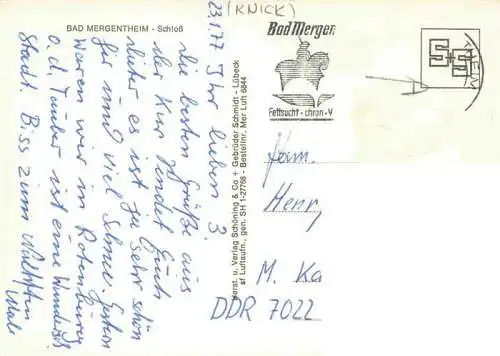 (KNICK)
BAD MERGENTHEIM - Schloß
23.1.77
Ihr lieben 3.
die besten Grüße aus
der Kur sendet Euch
es ist ja sehr schön
hier und viel Schnee. Gestern
waren wir in Rotenburg
o. d. Tauber ist eine
Stadt. Biss zum
Herst. u. Verlag Schöning & Co + Gebrüder Schmidt - Lübeck
sf Luftaufn., gen. SH 1-27768 - Bestellnr. Mer Luft 6844
Bad Mergen
Fettsucht · chron. V
Fam.
Henry
M. Ka
DDR 7022